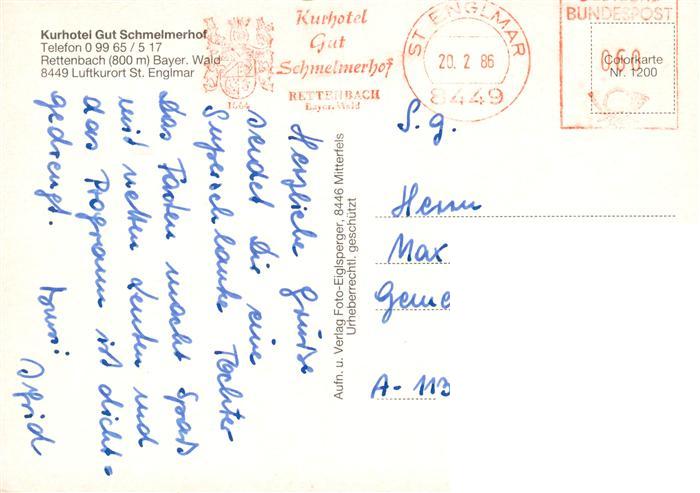 Kurhotel Gut Schmelmerhof
Telefon 0 99 65 / 5 17
Rettenbach (800 m) Bayer. Wald
8449 Luftkurort St. Englmar
Kurhotel
Gut
Schmelmerhof
RETTENBACH
Bayer. Wald
1664
ST ENGLMAR
20. 2 86
8449
BUNDESPOST
060
Colorkarte
Nr. 1200
Herzliche Grüße
sendet Dir eine
superschlanke Tochter
Das Fasten macht Spaß
mit netten Leuten und
das Programm ist dicht-
gedrengt.
Aufn. u. Verlag Foto-Eiglsperger, 8446 Mitterfels
Urheberrechtl. geschützt
S. g.
Herrn
Max
Geme
A-113